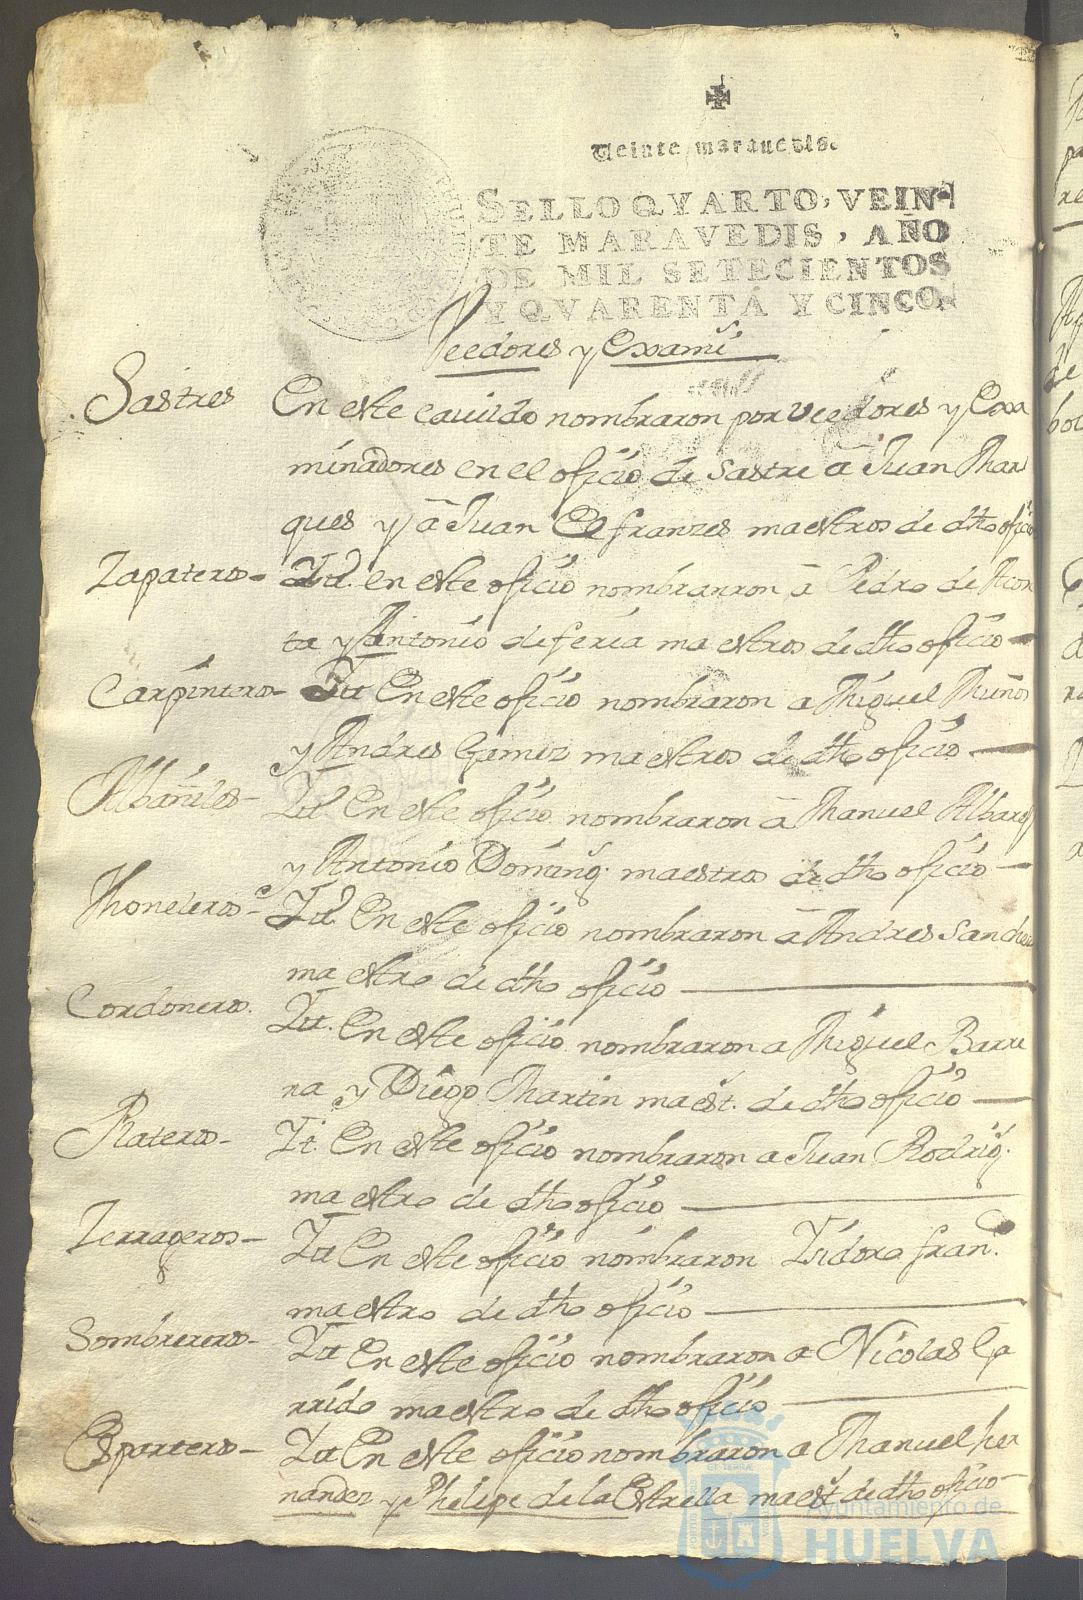 Veinte maravedis.
SELLO QVARTO, VEIN-
TE MARAVEDIS, AÑO
DE MIL SETECIENTOS
Y QVARENTA Y CINCO.
Veedores y Examˢ
Sastres En este cauildo nombraron por veedores y Exa
minadores en el ofiçio de sastre a Juan Mar
ques y a Juan El franzes maestros de dho ofiçio
Zapateros- Itt. en este ofiçio nombrarron a Pedro de Acos
ta y Antonio de feria maestros de dho ofiçio
Carpinteros- Itt En este ofiçio nombraron a Miguel Muños
y Andres Gamez maestros de dho ofiçio
Albañiles- Itt En este ofiçio nombraron a Manuel Albares
y Antonio Doming. maestros de dho ofiçio
Thoneleros- Itt. En este ofiçio nombraron a Andres Sanches
maestro de dho ofiçio
Cordoneros. Itt. En este ofiçio nombraron a Miguel Barre
ra y Diego Martin maest. de dho ofiçio
Plateros- It. En este ofiçio nombraron a Juan Rodrig.
maestro de dho ofiçio
Zerrageros- Itt En este ofiçio nombraron Isidoro franᶜᵒ
maestro de dho ofiçio
Sombrereros- Itt En este ofiçio nombraron a Nicolas Ga
rrido maestro de dho ofiçio
Esparteros- Itt En este ofiçio nombraron a Manuel her
nandez y Phelipe de la Estrella maest de dho ofiçio
Ayuntamiento de
HUELVA